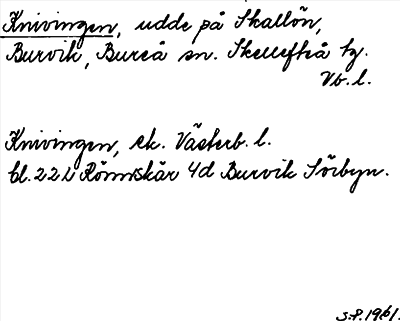 Knivingen, udde på Skallön,
Burvik, Bureå sn. Skellefteå tg.
Vb. l.
Knivingen, ek. Västerb. l.
bl. 22 L Rönnskär 4d Burvik Sörbyn.
S.P. 1961.